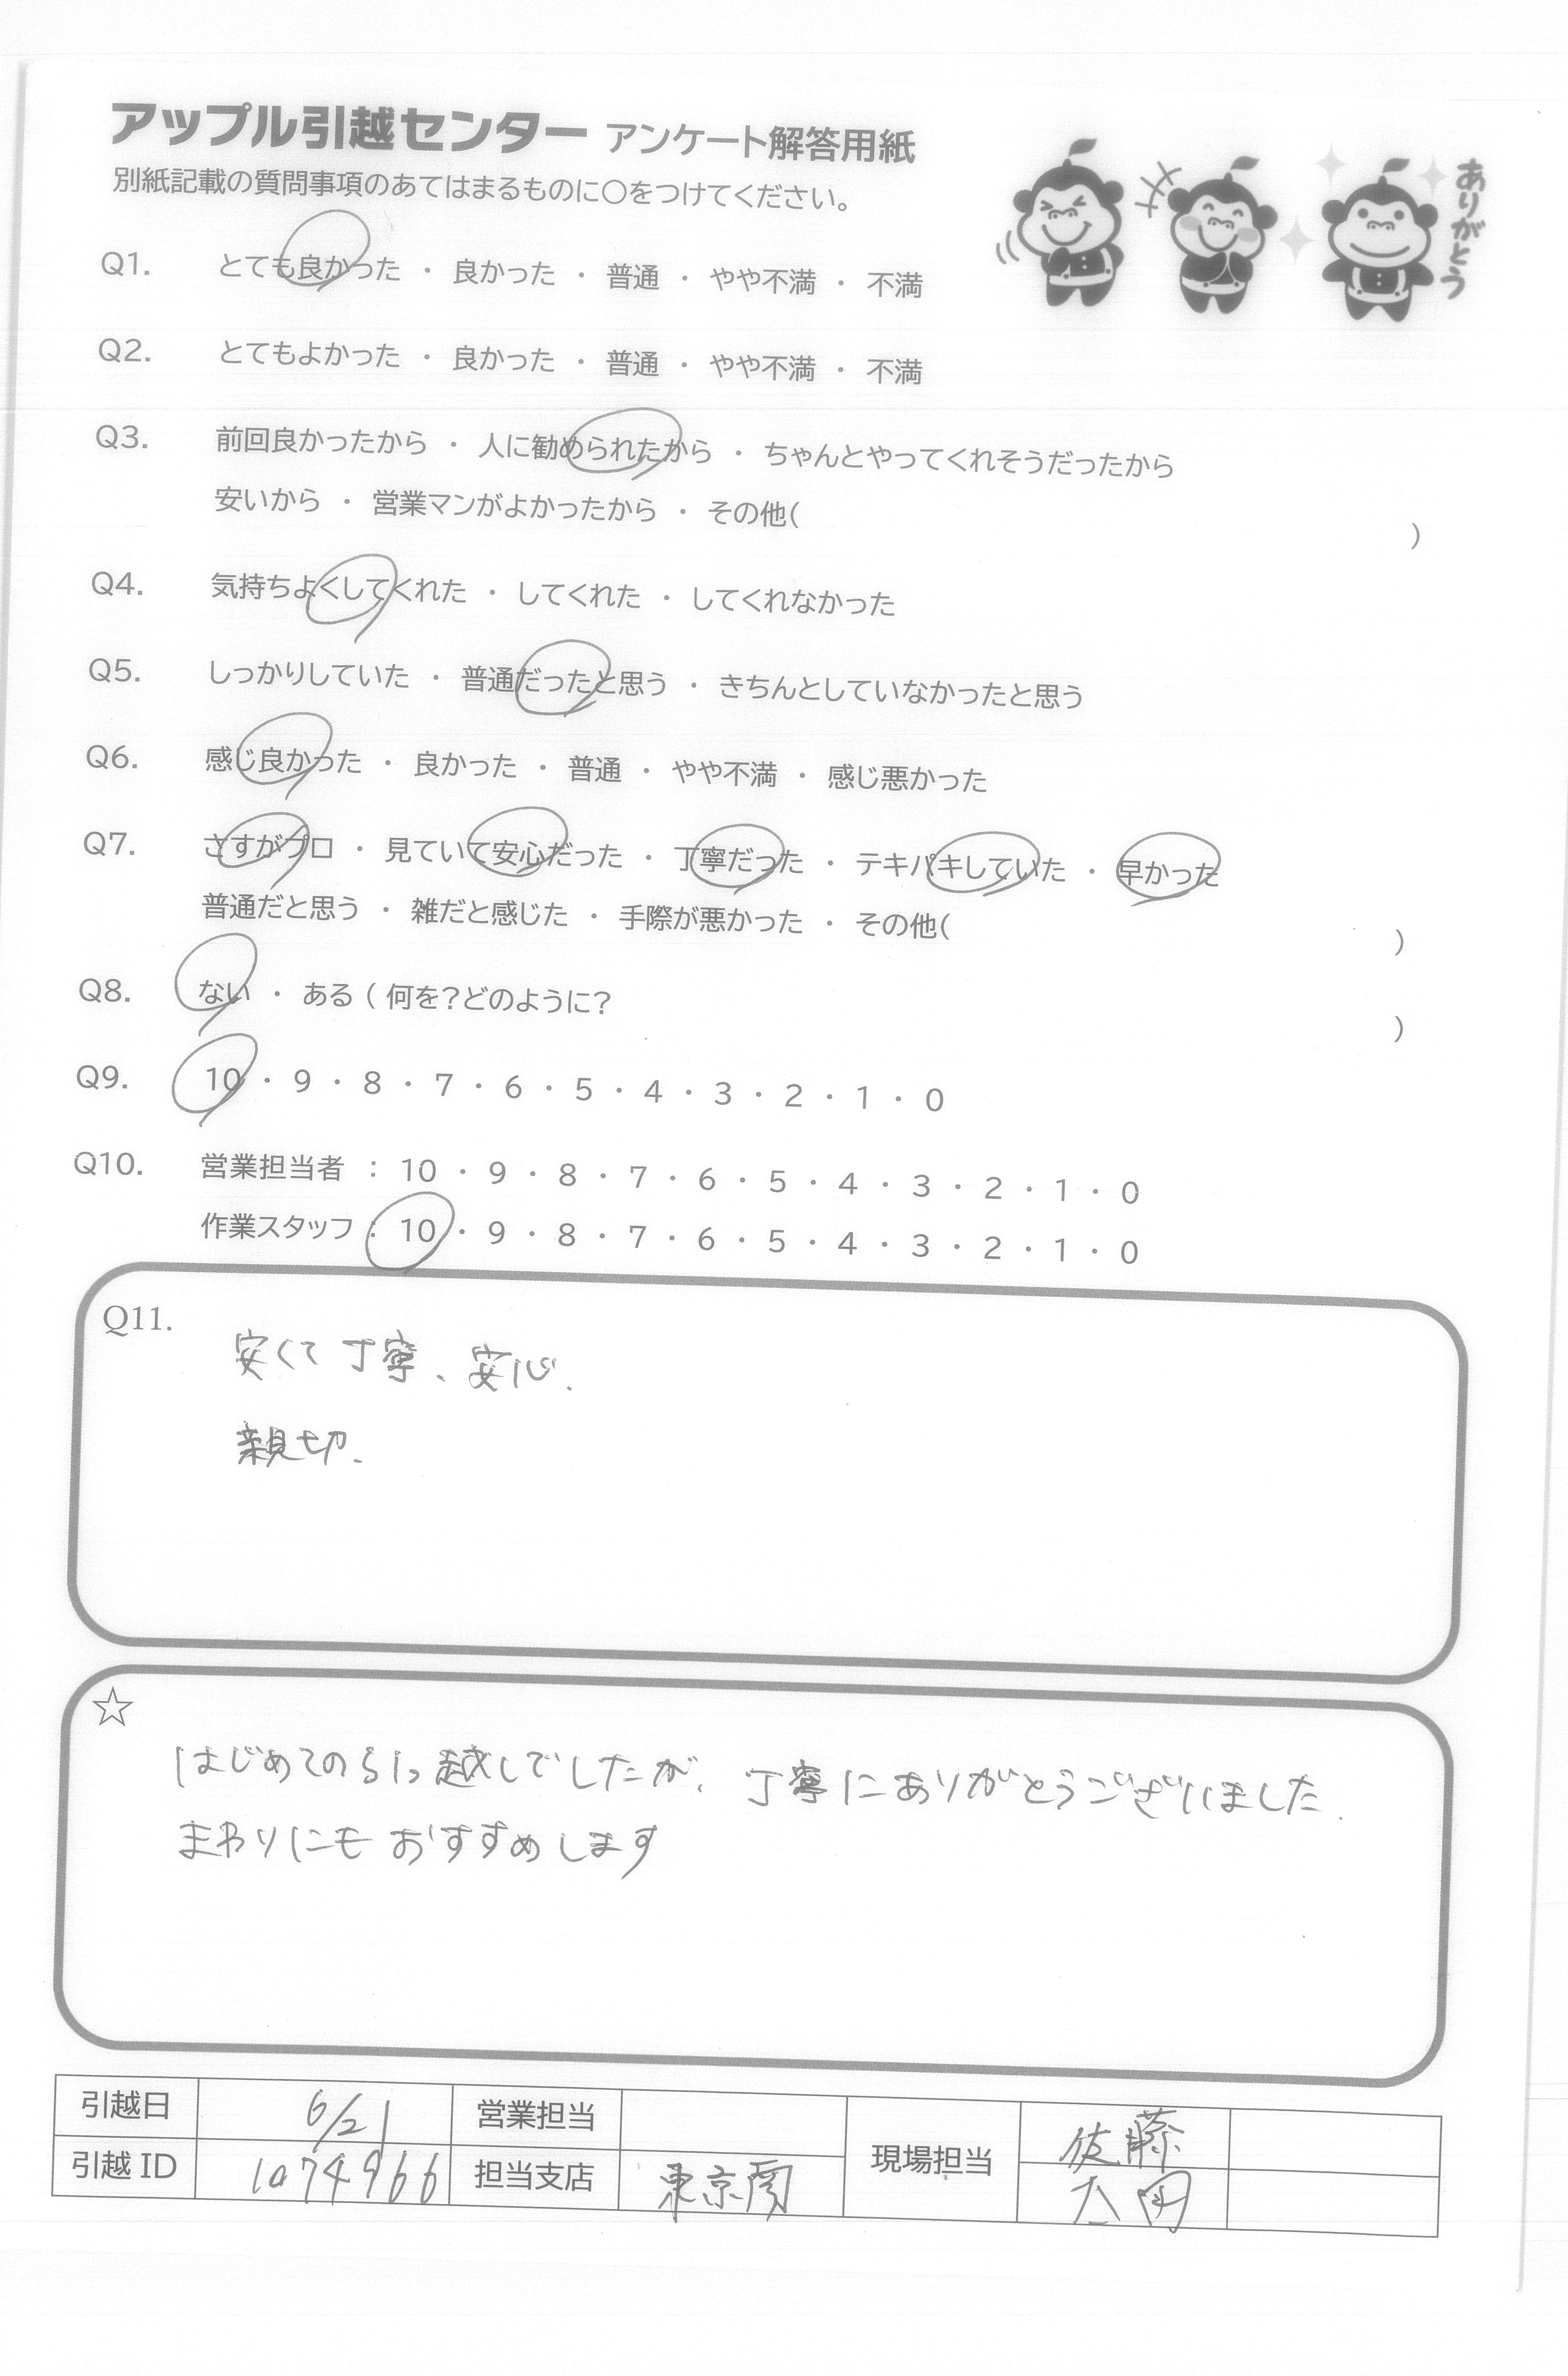 アップル引越センター アンケート解答用紙
別紙記載の質問事項のあてはまるものに〇をつけてください。
ありがとう
Q1. とても良かった ・ 良かった ・ 普通 ・ やや不満 ・ 不満
Q2. とてもよかった ・ 良かった ・ 普通 ・ やや不満 ・ 不満
Q3. 前回良かったから ・ 人に勧められたから ・ ちゃんとやってくれそうだったから
安いから ・ 営業マンがよかったから ・ その他( )
Q4. 気持ちよくしてくれた ・ してくれた ・ してくれなかった
Q5. しっかりしていた ・ 普通だったと思う ・ きちんとしていなかったと思う
Q6. 感じ良かった ・ 良かった ・ 普通 ・ やや不満 ・ 感じ悪かった
Q7. さすがプロ ・ 見ていて安心だった ・ 丁寧だった ・ テキパキしていた ・ 早かった
普通だと思う ・ 雑だと感じた ・ 手際が悪かった ・ その他( )
Q8. ない ・ ある ( 何を?どのように? )
Q9. 10 ・ 9 ・ 8 ・ 7 ・ 6 ・ 5 ・ 4 ・ 3 ・ 2 ・ 1 ・ 0
Q10. 営業担当者 : 10 ・ 9 ・ 8 ・ 7 ・ 6 ・ 5 ・ 4 ・ 3 ・ 2 ・ 1 ・ 0
作業スタッフ : 10 ・ 9 ・ 8 ・ 7 ・ 6 ・ 5 ・ 4 ・ 3 ・ 2 ・ 1 ・ 0
Q11.
安くて丁寧、安心.
親切.
☆
はじめての引っ越しでしたが、丁寧にありがとうございました.
まわりにもおすすめします
引越日 6/21 営業担当 現場担当 佐藤
引越 ID 1074966 担当支店 東京南 太田